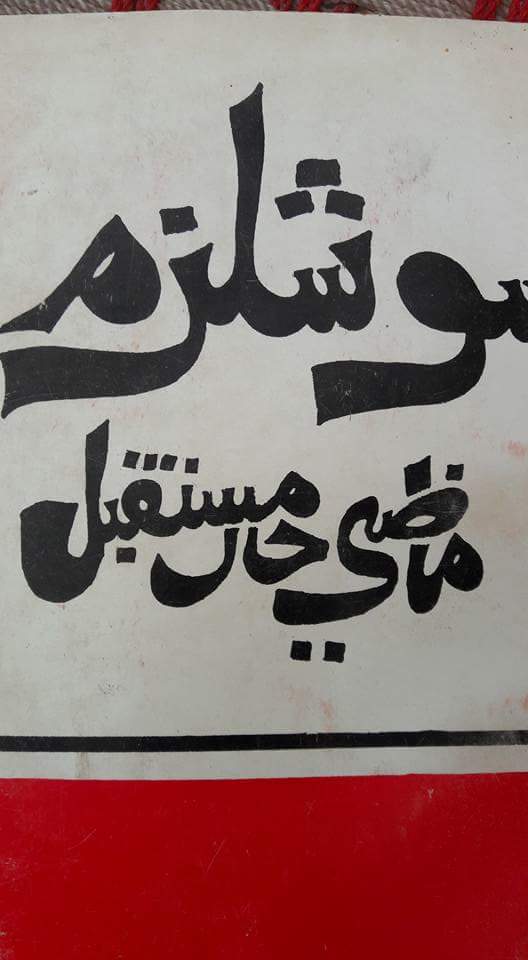 سوشلزم
ماضي حال مستقبل